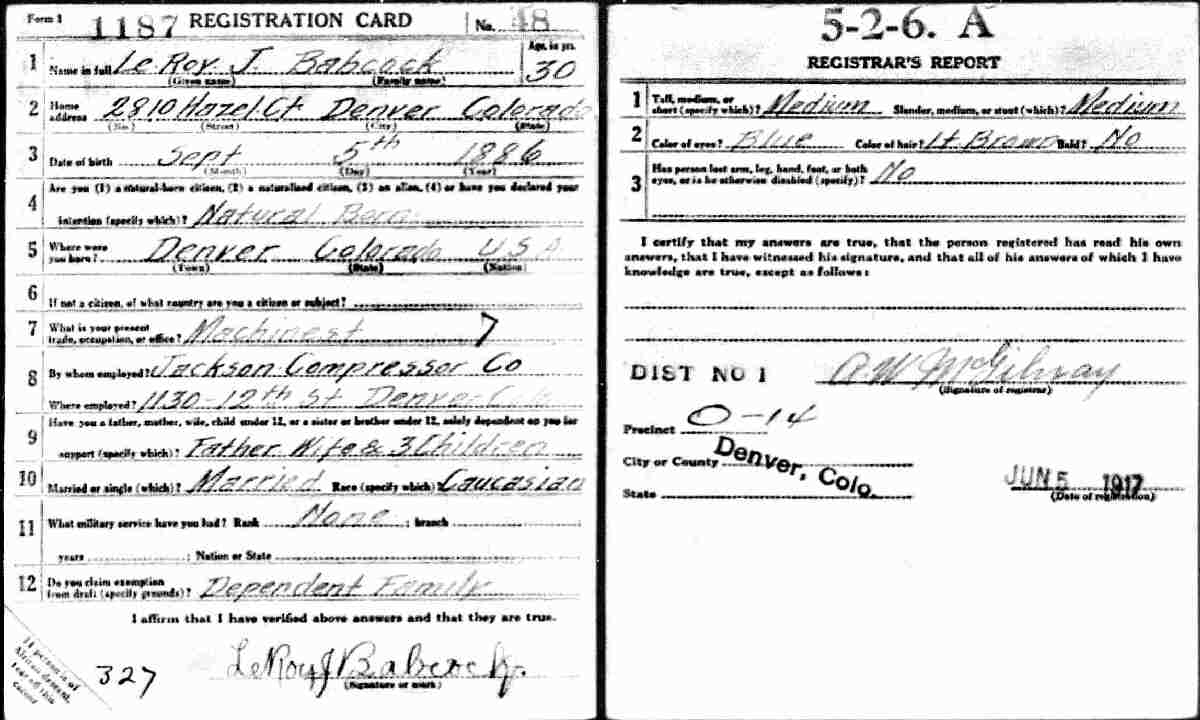 Form 1 1187 REGISTRATION CARD No. 48
1 Name in full Le Roy J. Babcock Age, in yrs. 30
(Given name) (Family name)
2 Home address 2810 Hazel Ct Denver Colorado
(No.) (Street) (City) (State)
3 Date of birth Sept 5th 1886
(Month) (Day) (Year)
4 Are you (1) a natural-born citizen, (2) a naturalized citizen, (3) an alien, (4) or have you declared your
intention (specify which)? Natural Born
5 Where were you born? Denver Colorado U.S.A.
(Town) (State) (Nation)
6 If not a citizen, of what country are you a citizen or subject?
7 What is your present trade, occupation, or office? Machinest 7
8 By whom employed? Jackson Compressor Co
Where employed? 1130-12th St Denver
9 Have you a father, mother, wife, child under 12, or a sister or brother under 12, solely dependent on you for
support (specify which)? Father Wife & 3 Children
10 Married or single (which)? Married Race (specify which)? Caucasian
11 What military service have you had? Rank None ; branch
years ; Nation or State
12 Do you claim exemption from draft (specify grounds)? Dependent Family
I affirm that I have verified above answers and that they are true.
327 LeRoy J Babcock
(Signature or mark)
If person is of
African descent,
tear off this
corner
5-2-6. A
REGISTRAR'S REPORT
1 Tall, medium, or short (specify which)? Medium Slender, medium, or stout (which)? Medium
2 Color of eyes? Blue Color of hair? Lt. Brown Bald? No
3 Has person lost arm, leg, hand, foot, or both
eyes, or is he otherwise disabled (specify)? No
I certify that my answers are true, that the person registered has read his own
answers, that I have witnessed his signature, and that all of his answers of which I have
knowledge are true, except as follows:
DIST NO 1 A W McGilvray
(Signature of registrar)
Precinct 0-14
City or County Denver, Colo.
State JUN 5 1917
(Date of registration)